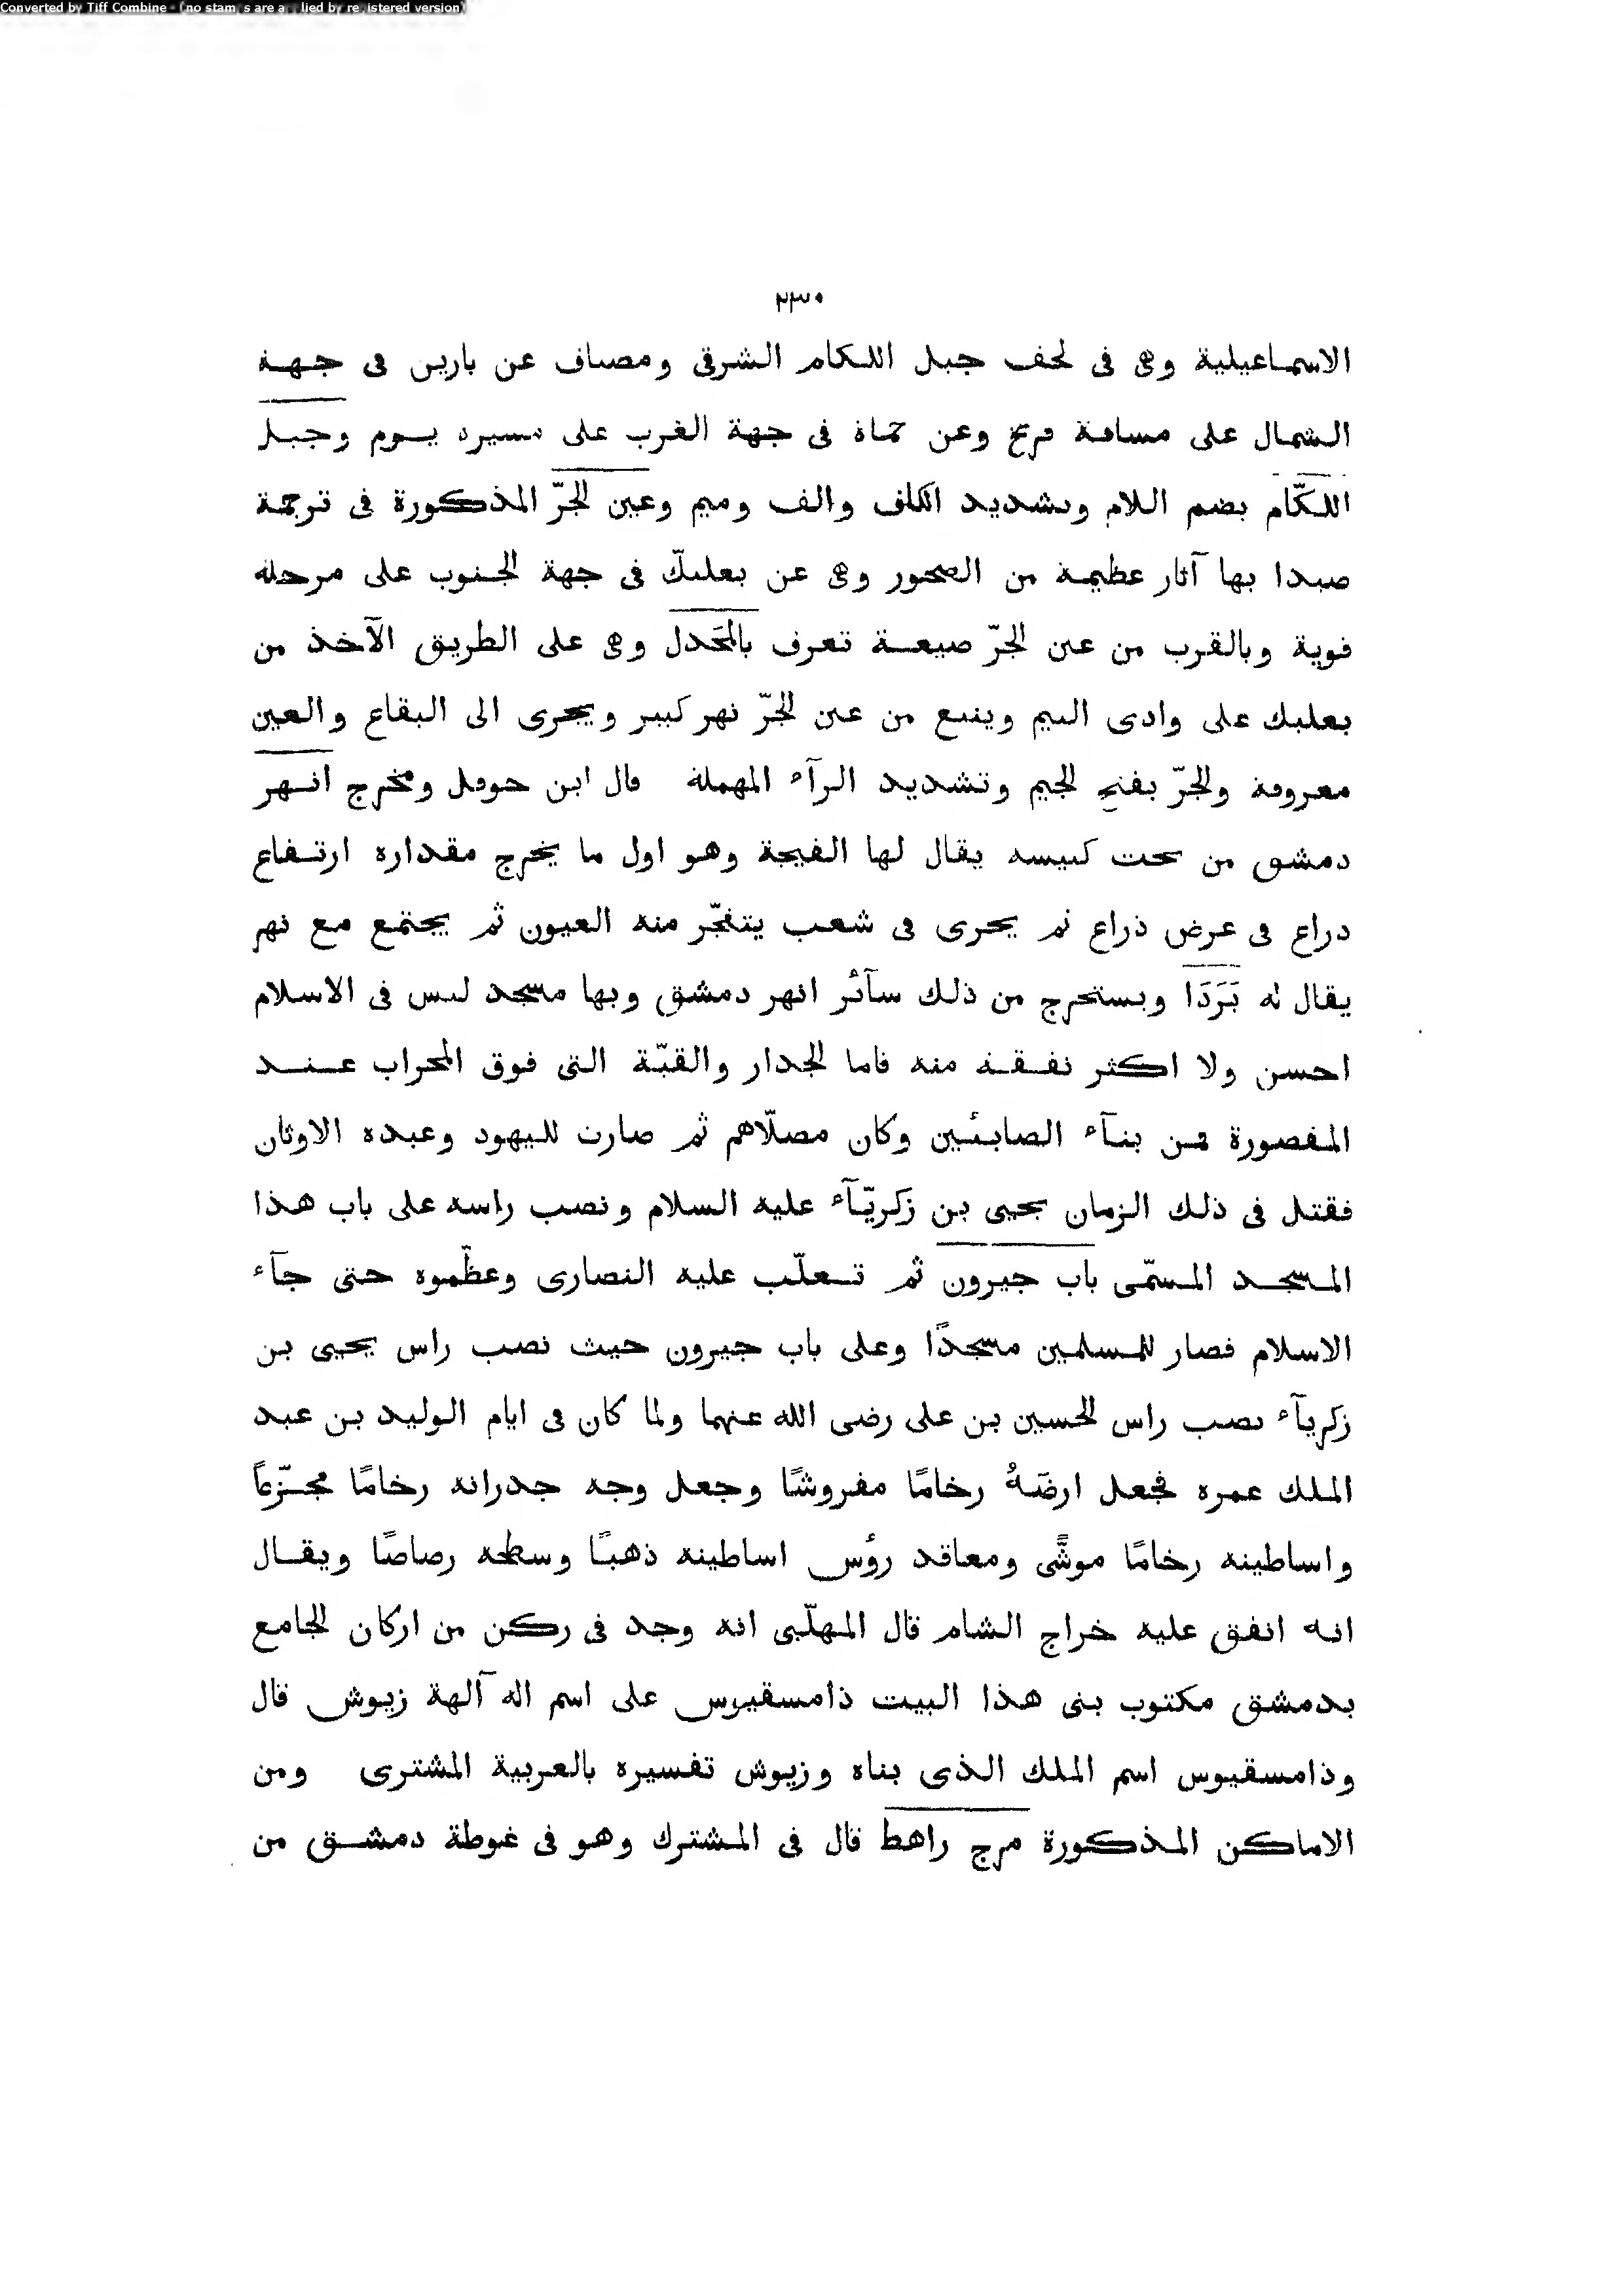 Converted by Tiff Combine - (no stamps are applied by registered version)
٢٣٠
الاسماعيلية وهى فى لحف جبل اللكام الشرقى ومصياف عن بارين فى جهة
الشمال على مسافة فرسخ وعن حماة فى جهة الغرب على مسيرة يوم وجبل
اللكّام بضم اللام وتشديد الكاف والف وميم وعين الجرّ المذكورة فى ترجمة
صيدا بها آثار عظيمة من الصخور وهى عن بعلبكّ فى جهة الجنوب على مرحلة
قوية وبالقرب من عين الجرّ ضيعة تعرف بالمَجْدل وهى على الطريق الآخذ من
بعلبك على وادى التيم وينبع من عين الجرّ نهر كبير ويجرى الى البقاع والعين
معروفة والجرّ بفتح الجيم وتشديد الرآء المهملة قال ابن حوقل ومخرج انهر
دمشق من تحت كنيسة يقال لها الفيجة وهو اول ما يخرج مقداره ارتفاع
ذراع فى عرض ذراع ثم يجرى فى شعب يتفجّر منه العيون ثم يجتمع مع نهر
يقال له بَرَدَا ويستخرج من ذلك سآئر انهر دمشق وبها مسجد ليس فى الاسلام
احسن ولا اكثر نفقة منه فاما الجدار والقبّة التى فوق المحراب عند
المقصورة فمن بنآء الصابئين وكان مصلّاهم ثم صارت لليهود وعبدة الاوثان
فقتل فى ذلك الزمان يحيى بن زكريّآء عليه السلام ونصب راسه على باب هذا
المسجد المسمّى باب جيرون ثم تغلّب عليه النصارى وعظّموه حتى جآء
الاسلام فصار للمسلمين مسجدًا وعلى باب جيرون حيث نصب راس يحيى بن
زكريآء نصب راس الحسين بن على رضى الله عنهما ولما كان فى ايام الوليد بن عبد
الملك عمره فجعل ارضَهُ رخامًا مفروشًا وجعل وجه جدرانه رخامًا مجزّعاً
واساطينه رخامًا موشًّى ومعاقد رؤس اساطينه ذهبًا وسطحه رصاصًا ويقال
انه انفق عليه خراج الشام قال المهلّبى انه وجد فى ركن من اركان الجامع
بدمشق مكتوب بنى هذا البيت ذامسقيوس على اسم اله آلهة زيوش قال
وذامسقيوس اسم الملك الذى بناه وزيوش تفسيره بالعربية المشترى ومن
الاماكن المذكورة مرج راهط قال فى المشترك وهو فى غوطة دمشق من